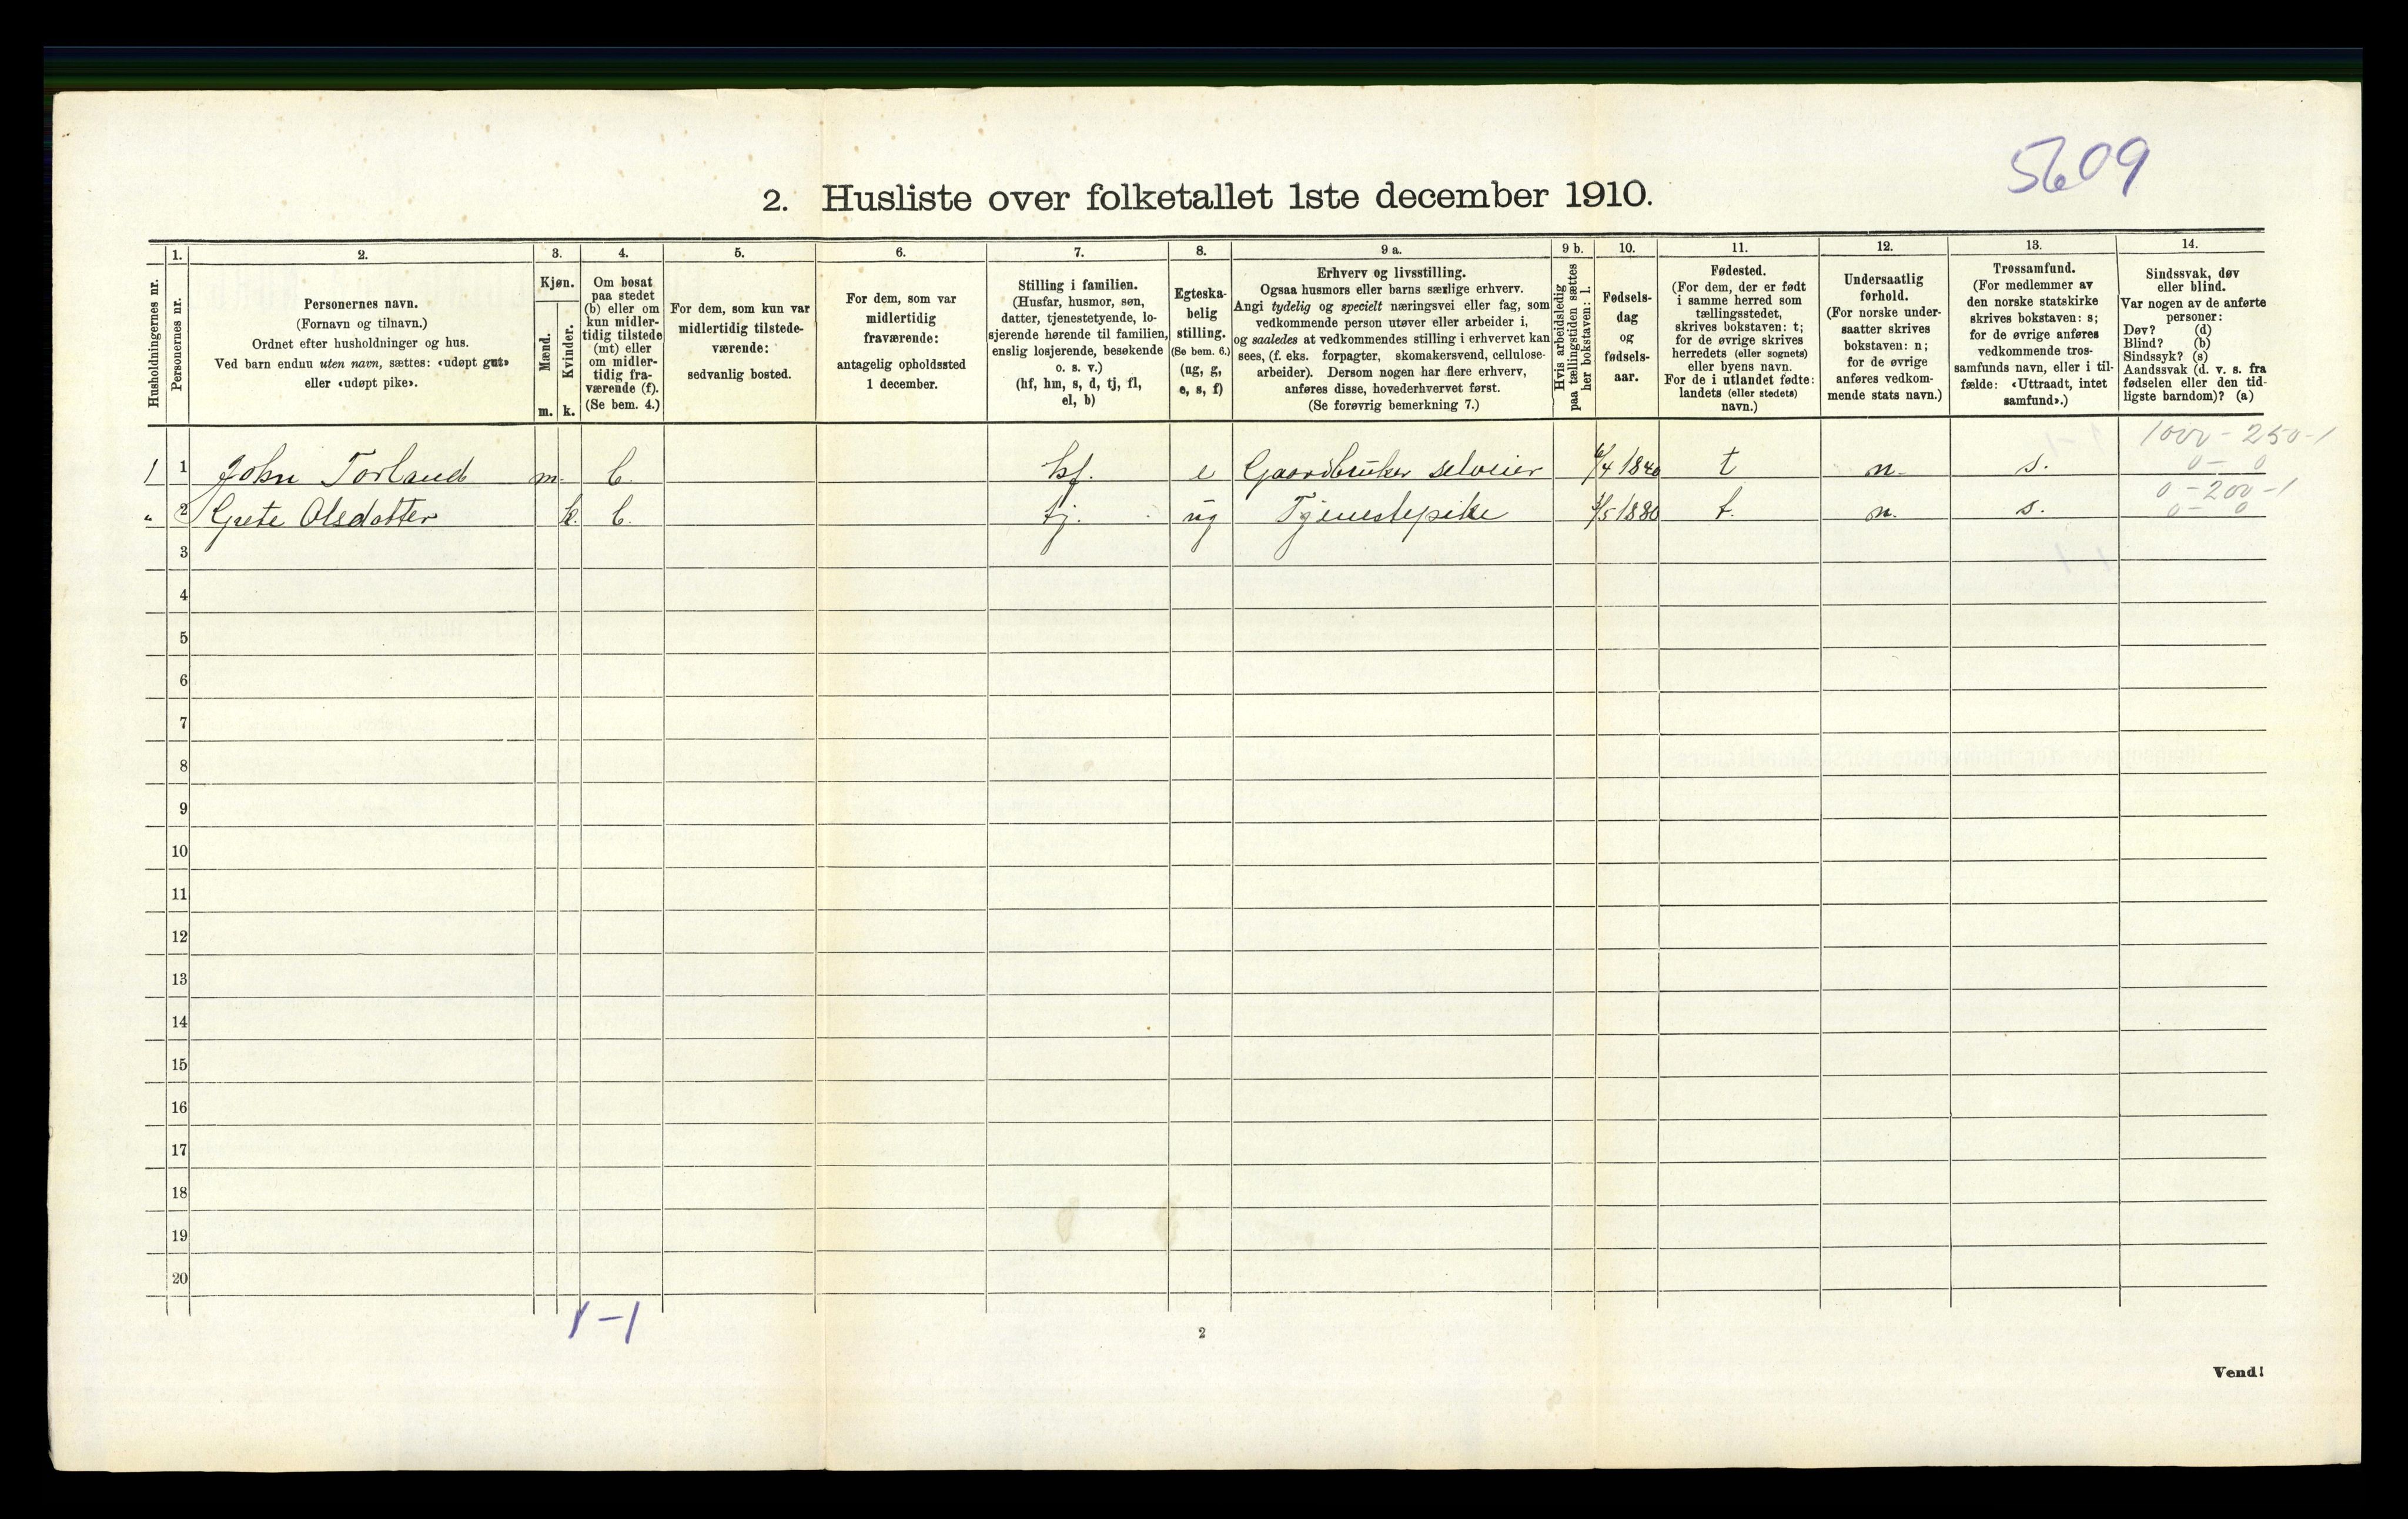 5609
2. Husliste over folketallet 1ste december 1910.
Husholdningernes nr.
1.
Personernes nr.
2.
Personernes navn.
(Fornavn og tilnavn.)
Ordnet efter husholdninger og hus.
Ved barn endnu uten navn, sættes: «udøpt gut»
eller «udøpt pike».
3.
Kjøn.
Mænd.
m.
Kvinder.
k.
4.
Om bosat
paa stedet
(b) eller om
kun midler-
tidig tilstede
(mt) eller
om midler-
tidig fra-
værende (f).
(Se bem. 4.)
5.
For dem, som kun var
midlertidig tilstede-
værende:
sedvanlig bosted.
6.
For dem, som var
midlertidig
fraværende:
antagelig opholdssted
1 december.
7.
Stilling i familien.
(Husfar, husmor, søn,
datter, tjenestetyende, lo-
sjerende hørende til familien,
enslig losjerende, besøkende
o. s. v.)
(hf, hm, s, d, tj, fl,
el, b)
8.
Egteska-
belig
stilling.
(Se bem. 6.)
(ug, g,
e, s, f)
9 a.
Erhverv og livsstilling.
Ogsaa husmors eller barns særlige erhverv.
Angi tydelig og specielt næringsvei eller fag, som
vedkommende person utøver eller arbeider i,
og saaledes at vedkommendes stilling i erhvervet kan
sees, (f. eks. forpagter, skomakersvend, cellulose-
arbeider). Dersom nogen har flere erhverv,
anføres disse, hovederhvervet først.
(Se forøvrig bemerkning 7.)
9 b.
Hvis arbeidsledig
paa tællingstiden sættes
her bokstaven: l.
10.
Fødsels-
dag
og
fødsels-
aar.
11.
Fødested.
(For dem, der er født
i samme herred som
tællingsstedet,
skrives bokstaven: t;
for de øvrige skrives
herredets (eller sognets)
eller byens navn.
For de i utlandet fødte:
landets (eller stedets)
navn.)
12.
Undersaatlig
forhold.
(For norske under-
saatter skrives
bokstaven: n;
for de øvrige
anføres vedkom-
mende stats navn.)
13.
Trossamfund.
(For medlemmer av
den norske statskirke
skrives bokstaven: s;
for de øvrige anføres
vedkommende tros-
samfunds navn, eller i til-
fælde: «Uttraadt, intet
samfund».)
14.
Sindssvak, døv
eller blind.
Var nogen av de anførte
personer:
Døv? (d)
Blind? (b)
Sindssyk? (s)
Aandssvak (d. v. s. fra
fødselen eller den tid-
ligste barndom)? (a)
1000 - 250 - 1
1 1 John Torland m. b. hf. e Gaardbruker selveier /4 1840 t n. s. 0 - 0
0 - 200 - 1
" 2 Grete Olsdatter k. b. tj. ug Tjenestepike /5 1880 t. n. s. 0 - 0
3
4
5
6
7
8
9
10
11
12
13
14
15
16
17
18
19
20
1 - 1
2
Vend!